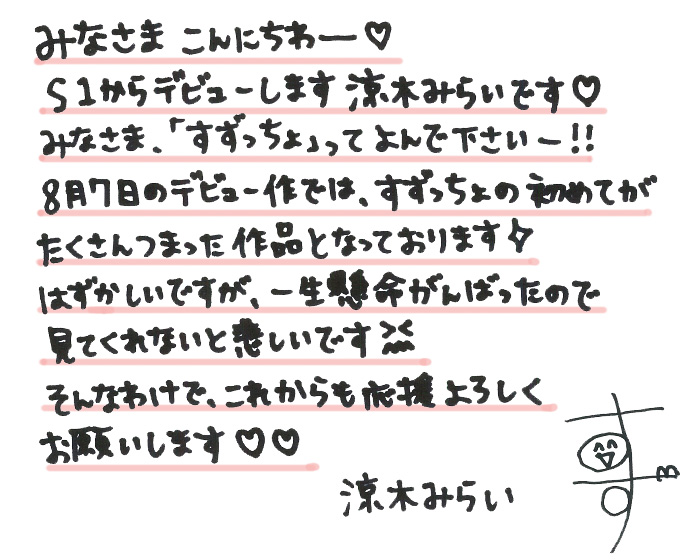 みなさま こんにちわー♡
S1からデビューします 涼木みらいです♡
みなさま、「すずっちょ」って よんで下さいー!!
8月7日のデビュー作では、すずっちょの 初めてが
たくさんつまった 作品となっております
はずかしいですが、一生懸命がんばったので
見てくれないと悲しいです
そんなわけで、これからも 応援 よろしく
お願いします♡♡
涼木みらい
す